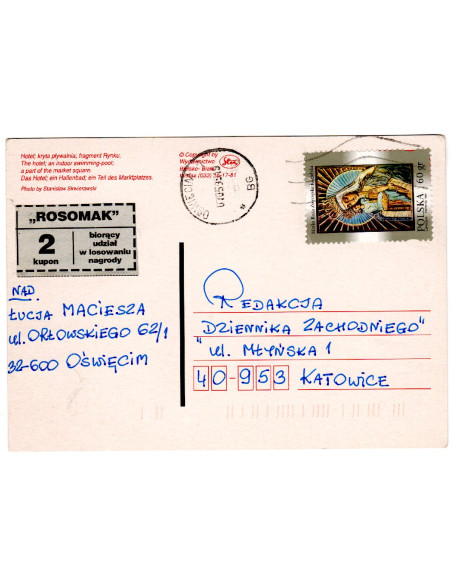 Hotel; kryta pływalnia; fragment Rynku.
The hotel; an indoor swimming-pool;
a part of the market square.
Das Hotel; ein Hallenbad; ein Teil des Marktplatzes.
Photo by Stanisław Skwierawski
© Copyright by
Wydawnictwo
Bielsko-Biała
OŚWIĘCIM
BG
POLSKA 60 gr
„ROSOMAK”
2
kupon
biorący
udział
w losowaniu
nagrody
NAD.
ŁUCJA MACIESZA
ul. ORŁOWSKIEGO 62/1
32-600 OŚWIĘCIM
REDAKCJA
„DZIENNIKA ZACHODNIEGO”
ul. MŁYŃSKA 1
40-953 KATOWICE